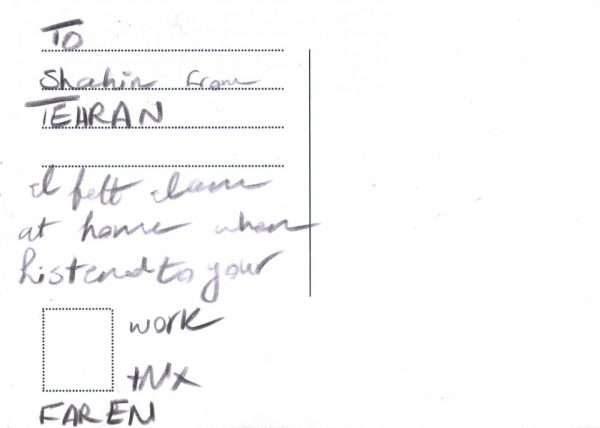 To
Shahin from
TEHRAN
I felt I am
at home when
listened to your
work
tNX
FAREN